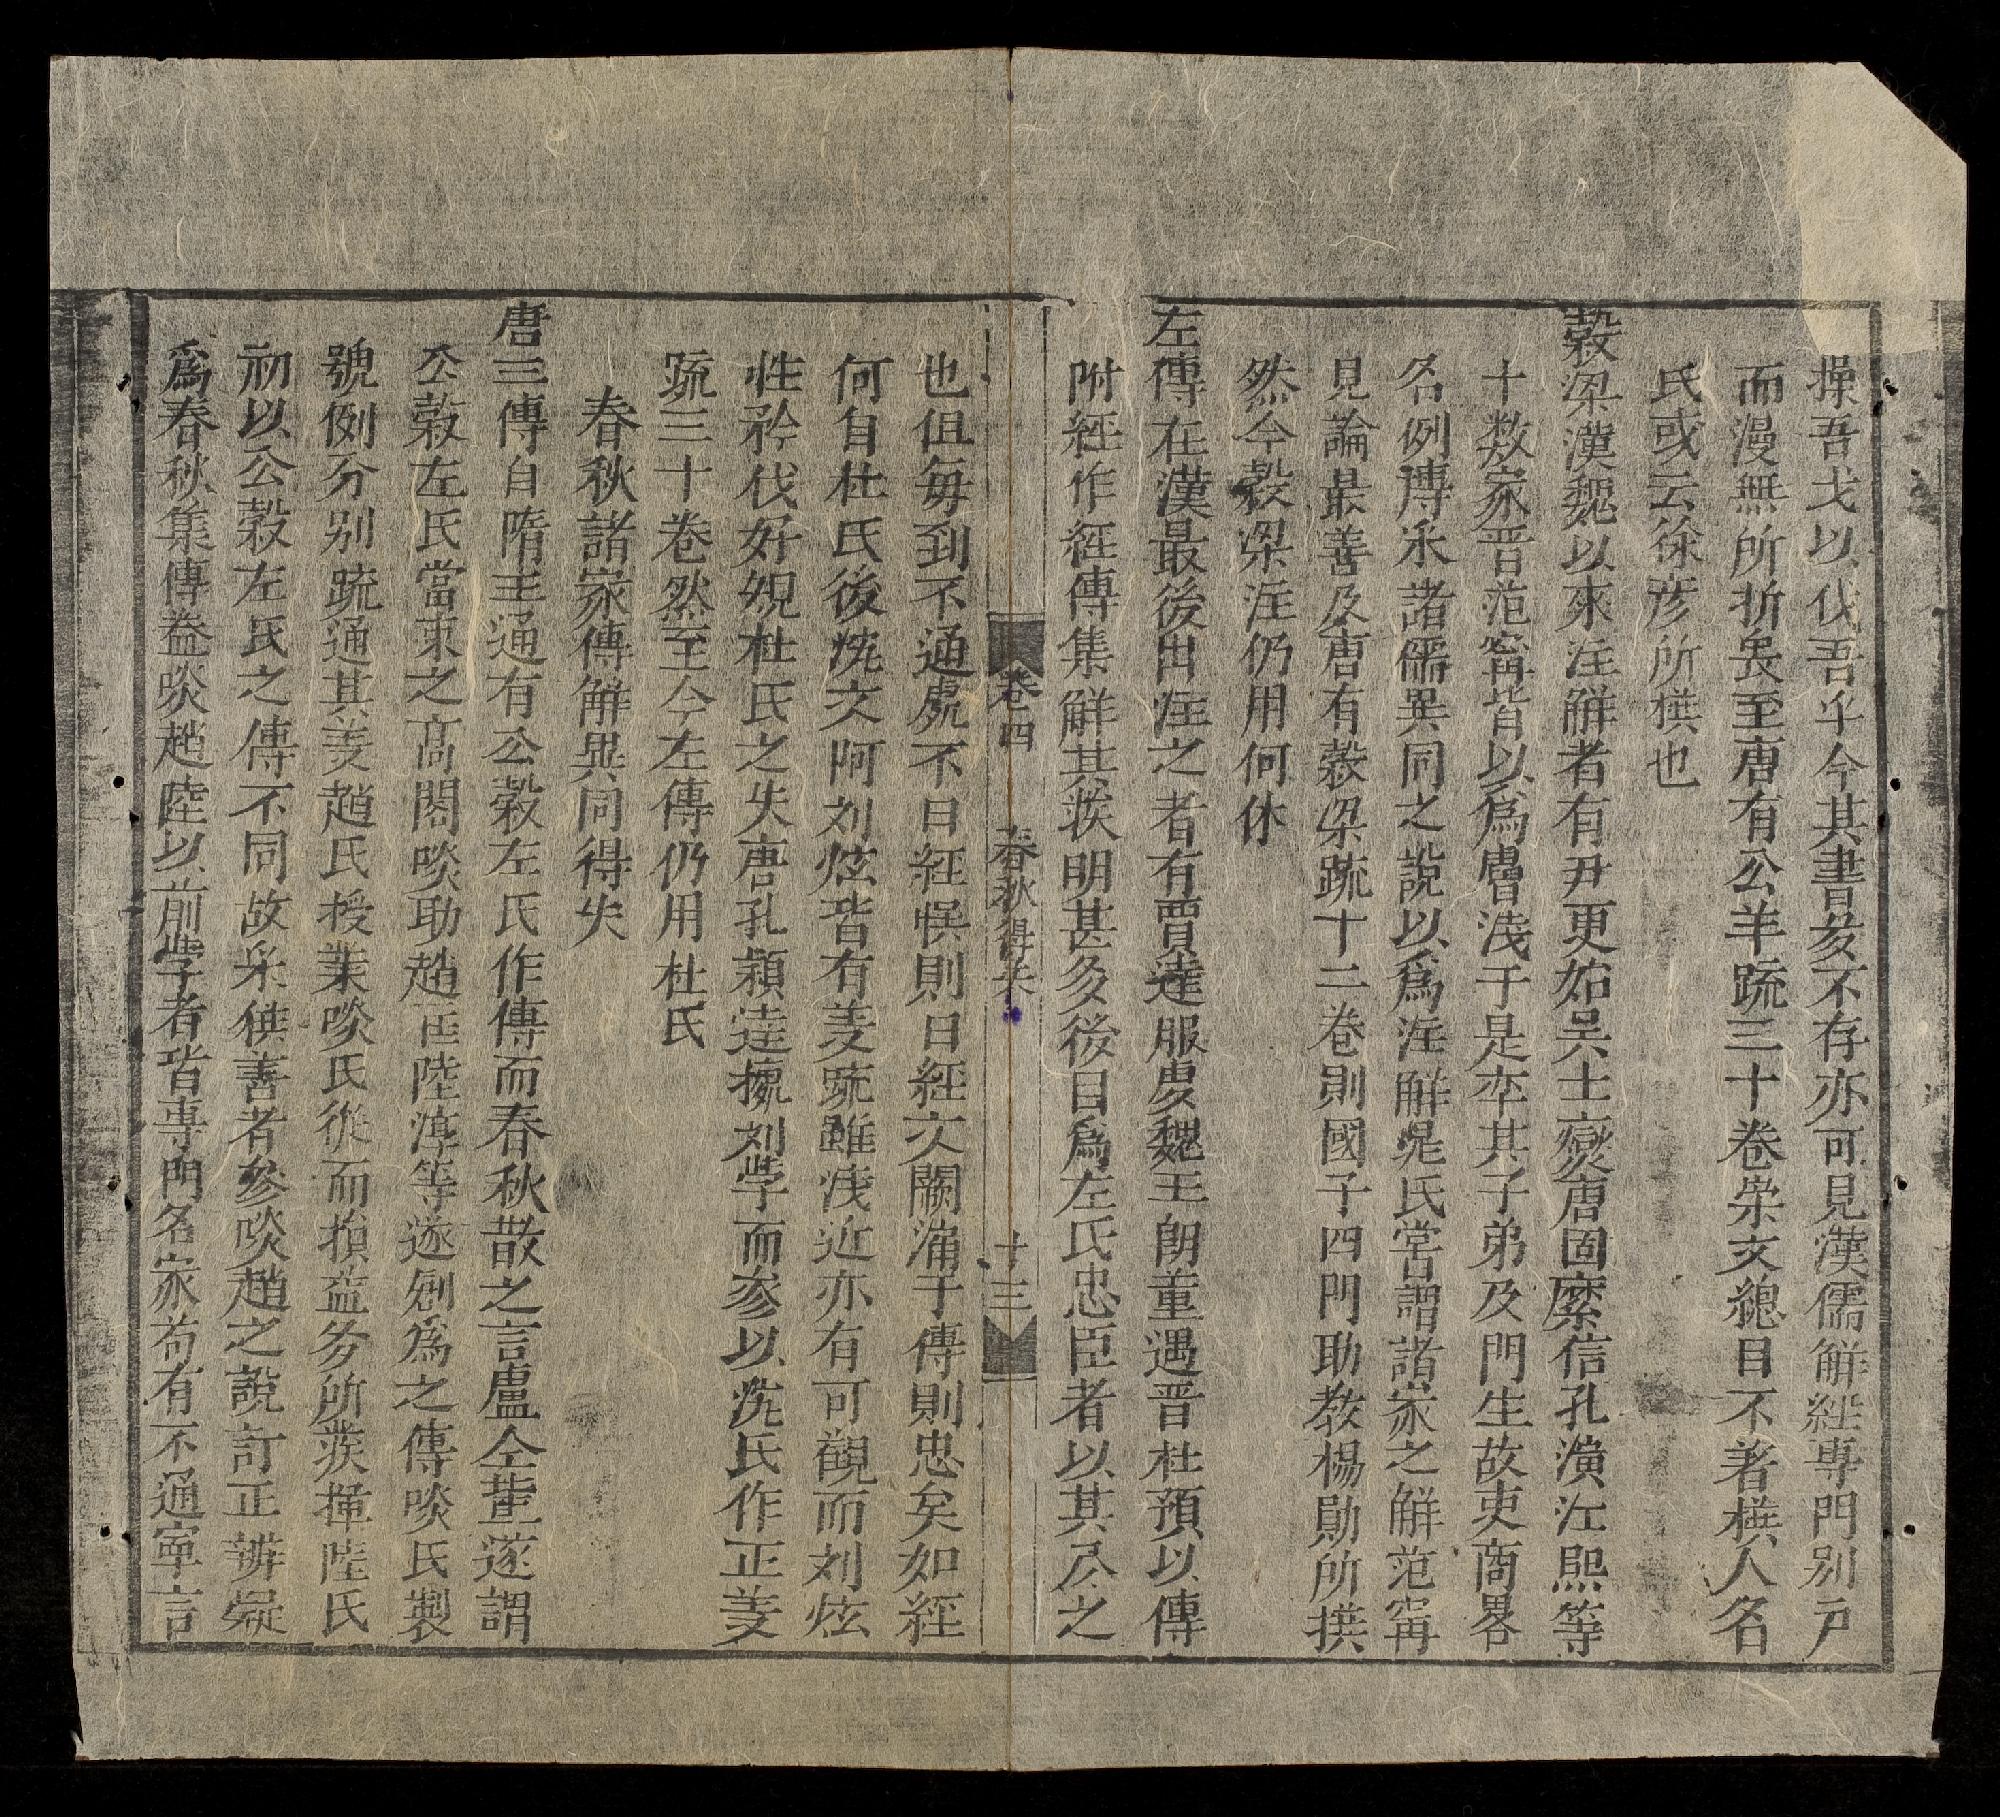 操吾戈以伐吾乎今其書多不存亦可見漢儒解經專門别戸
而漫無所折衷至唐有公羊疏三十卷崇文緫目不著撰人名
氏或云徐彦所撰也
穀梁漢魏以來注解者有尹更始吴士爕唐固麋信孔演江熙等
十数家晋范甯皆以爲膚淺于是卒其子弟及門生故吏商畧
名例博采諸儒異同之說以爲注解晁氏嘗謂諸家之解范甯
見論最善及唐有穀梁疏十二卷則國子四門助教楊勛所撰
然今穀梁注仍用何休
左傳在漢最後出注之者有賈逵服䖍魏王朗董遇晋杜預以傳
附經作經傳集解其發明甚多後目爲左氏忠臣者以其尽之
卷四　春秋得失　十三
也但毎到不通處不曰経悞則曰経文闕漏于傳則忠矣如経
何自杜氏後沈文阿刘炫皆有義疏雖浅近亦有可觀而刘炫
性矜伐好規杜氏之失唐孔穎逹㨿刘学而参以沈氏作正義
疏三十卷然至今左傳仍用杜氏
春秋諸家傳解異同得失
唐三傳自隋王通有公穀左氏作傳而春秋散之言盧仝軰遂謂
公穀左氏當束之高閣啖助趙匡陸淳等遂剏為之傳啖氏製
號例分别疏通其義趙氏授業啖氏從而損益多所發揮陸氏
初以公穀左氏之傳不同故采撰善者參啖趙之說訂正辨疑
爲春秋集傳益啖趙陸以前学者皆專門名家苟有不通寜言